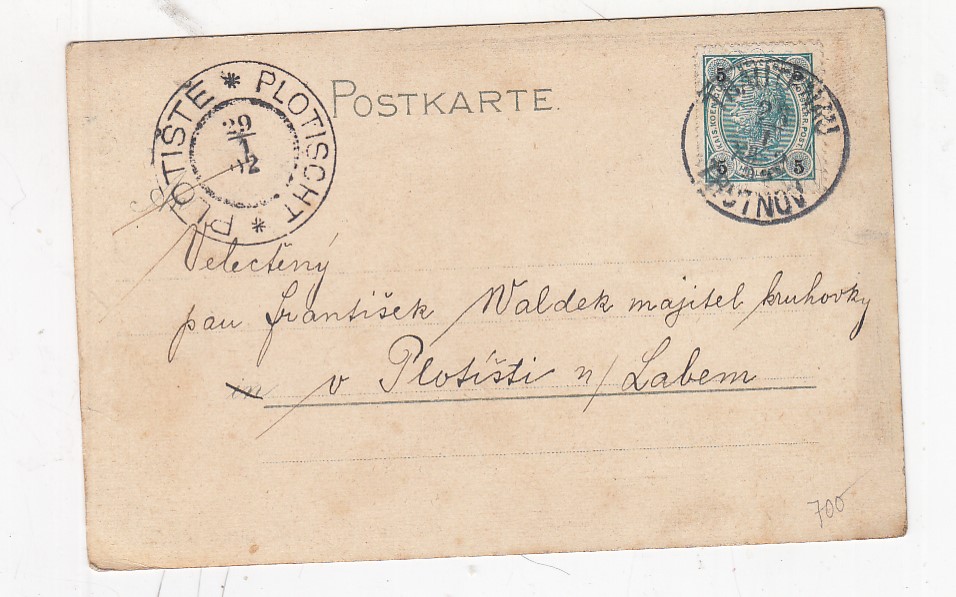 POSTKARTE.
PLOTIŠTĚ * PLOTISCHT *
29
1
02
5 5
5 5
TRUTNOV
Velectěný
pan František Waldek majitel kruhovky
in v Plotišti n/Labem
700